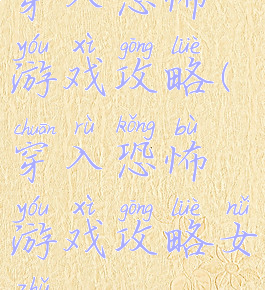 穿入恐怖
yóu xì gōng lüè
游戏攻略(
chuān rù kǒng bù
穿入恐怖
yóu xì gōng lüè nǚ
游戏攻略女
zhǔ